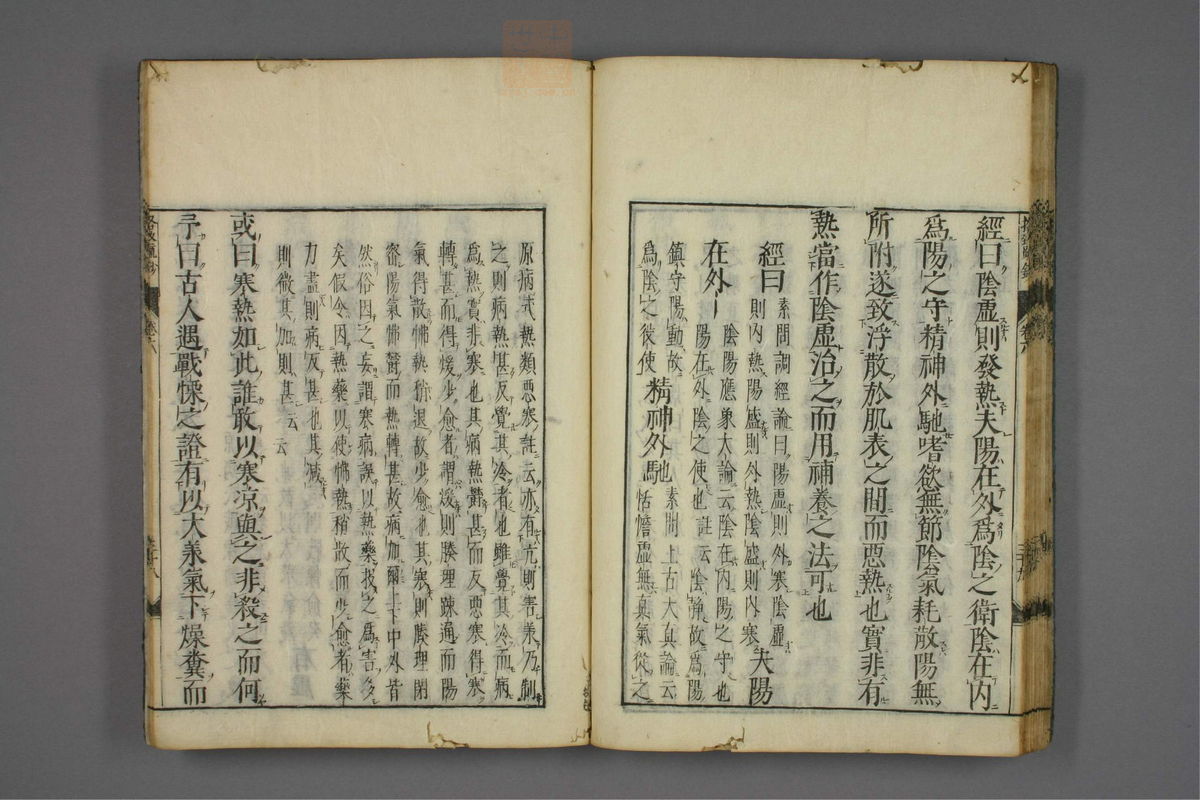 經曰陰虛則發熱夫陽在外爲陰之衛陰在内
爲陽之守精神外馳嗜慾無節陰氣耗散陽無
所附遂致浮散於肌表之間而惡熱也實非有
熱當作陰虛治之而用補養之法可也
經曰
素問調經論曰陽虛則外寒陰虛
則内熱陽盛則外熱陰盛則内寒
夫陽
在外
陰陽應象大論云陰在内陽之守也
陽在外陰之使也註云陰靜故爲陽
鎮守陽動故
爲陰之役使
精神外馳
素問上古天真論云
恬憺虛無真氣從之
原病式熱類惡寒註云亦有亢則害承乃制
之則病熱甚反覺其冷者也雖覺其冷而病
爲熱實非寒也其病熱欝甚而反惡寒得寒
轉甚而得煖少愈者謂煖則腠理踈通而陽
氣得散怫熱稍退故少愈也其寒則腠理閉
密陽氣怫欝而熱轉甚故病加爾上下中外皆
然俗因之妄謂寒病誤以熱藥投之爲害多
矣假令因熱藥以使怫熱稍散而少愈者藥
力盡則病反甚也其减
則微其加則甚云云
或曰寒熱如此誰敢以寒凉與之非殺之而何
予曰古人遇戰慄之證有以大承氣下燥糞而